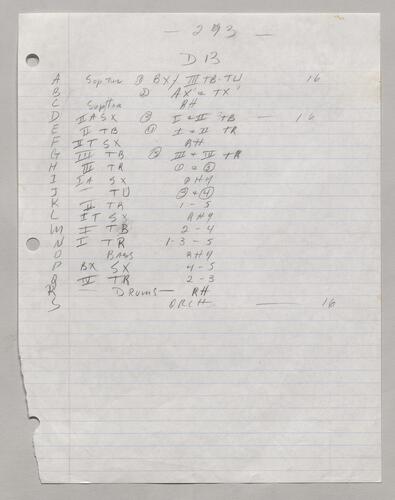 — 293 —
DB
A Soptra ① BX / III TB-TU 16
B ② AX & TX
C Soptra RH
D II A SX ③ I & II TB — 16
E II TB ④ I & II TR
F II T SX RH
G III TB ⑤ III & IV TR
H III TR ① & ②
I I A SX RHY
J — TU ③ & ④
K II TR 1 - 5
L I T SX RHY
M I TB 2 - 4
N I TR 1 - 3 - 5
O BASS RHY
P BX SX 4 - 5
Q IV TR 2 - 3
R — DRUMS — RH
S ORCH — 16